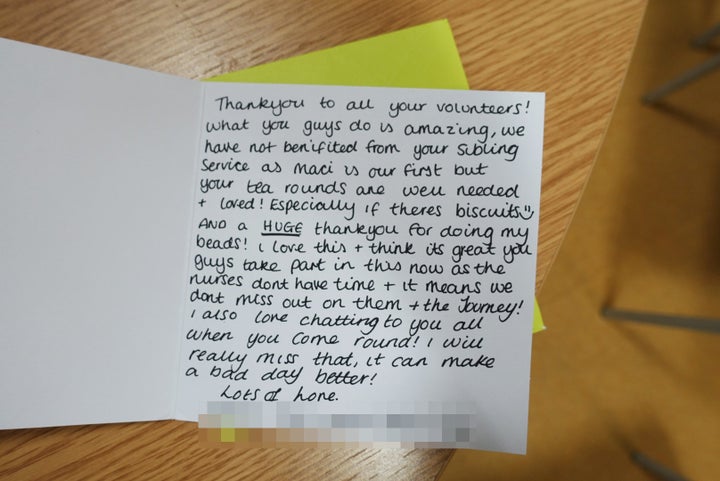 Thankyou to all your volunteers!
What you guys do is amazing, we
have not benifited from your Sibling
Service as Maci is our first but
your tea rounds are well needed
+ loved! Especially if theres biscuits
AND a HUGE thankyou for doing my
beads! i love this + think its great you
guys take part in this now as the
nurses dont have time + it means we
dont miss out on them + the Journey!
i also love chatting to you all
when you come round! I will
really miss that, it can make
a bad day better!
Lots of love.